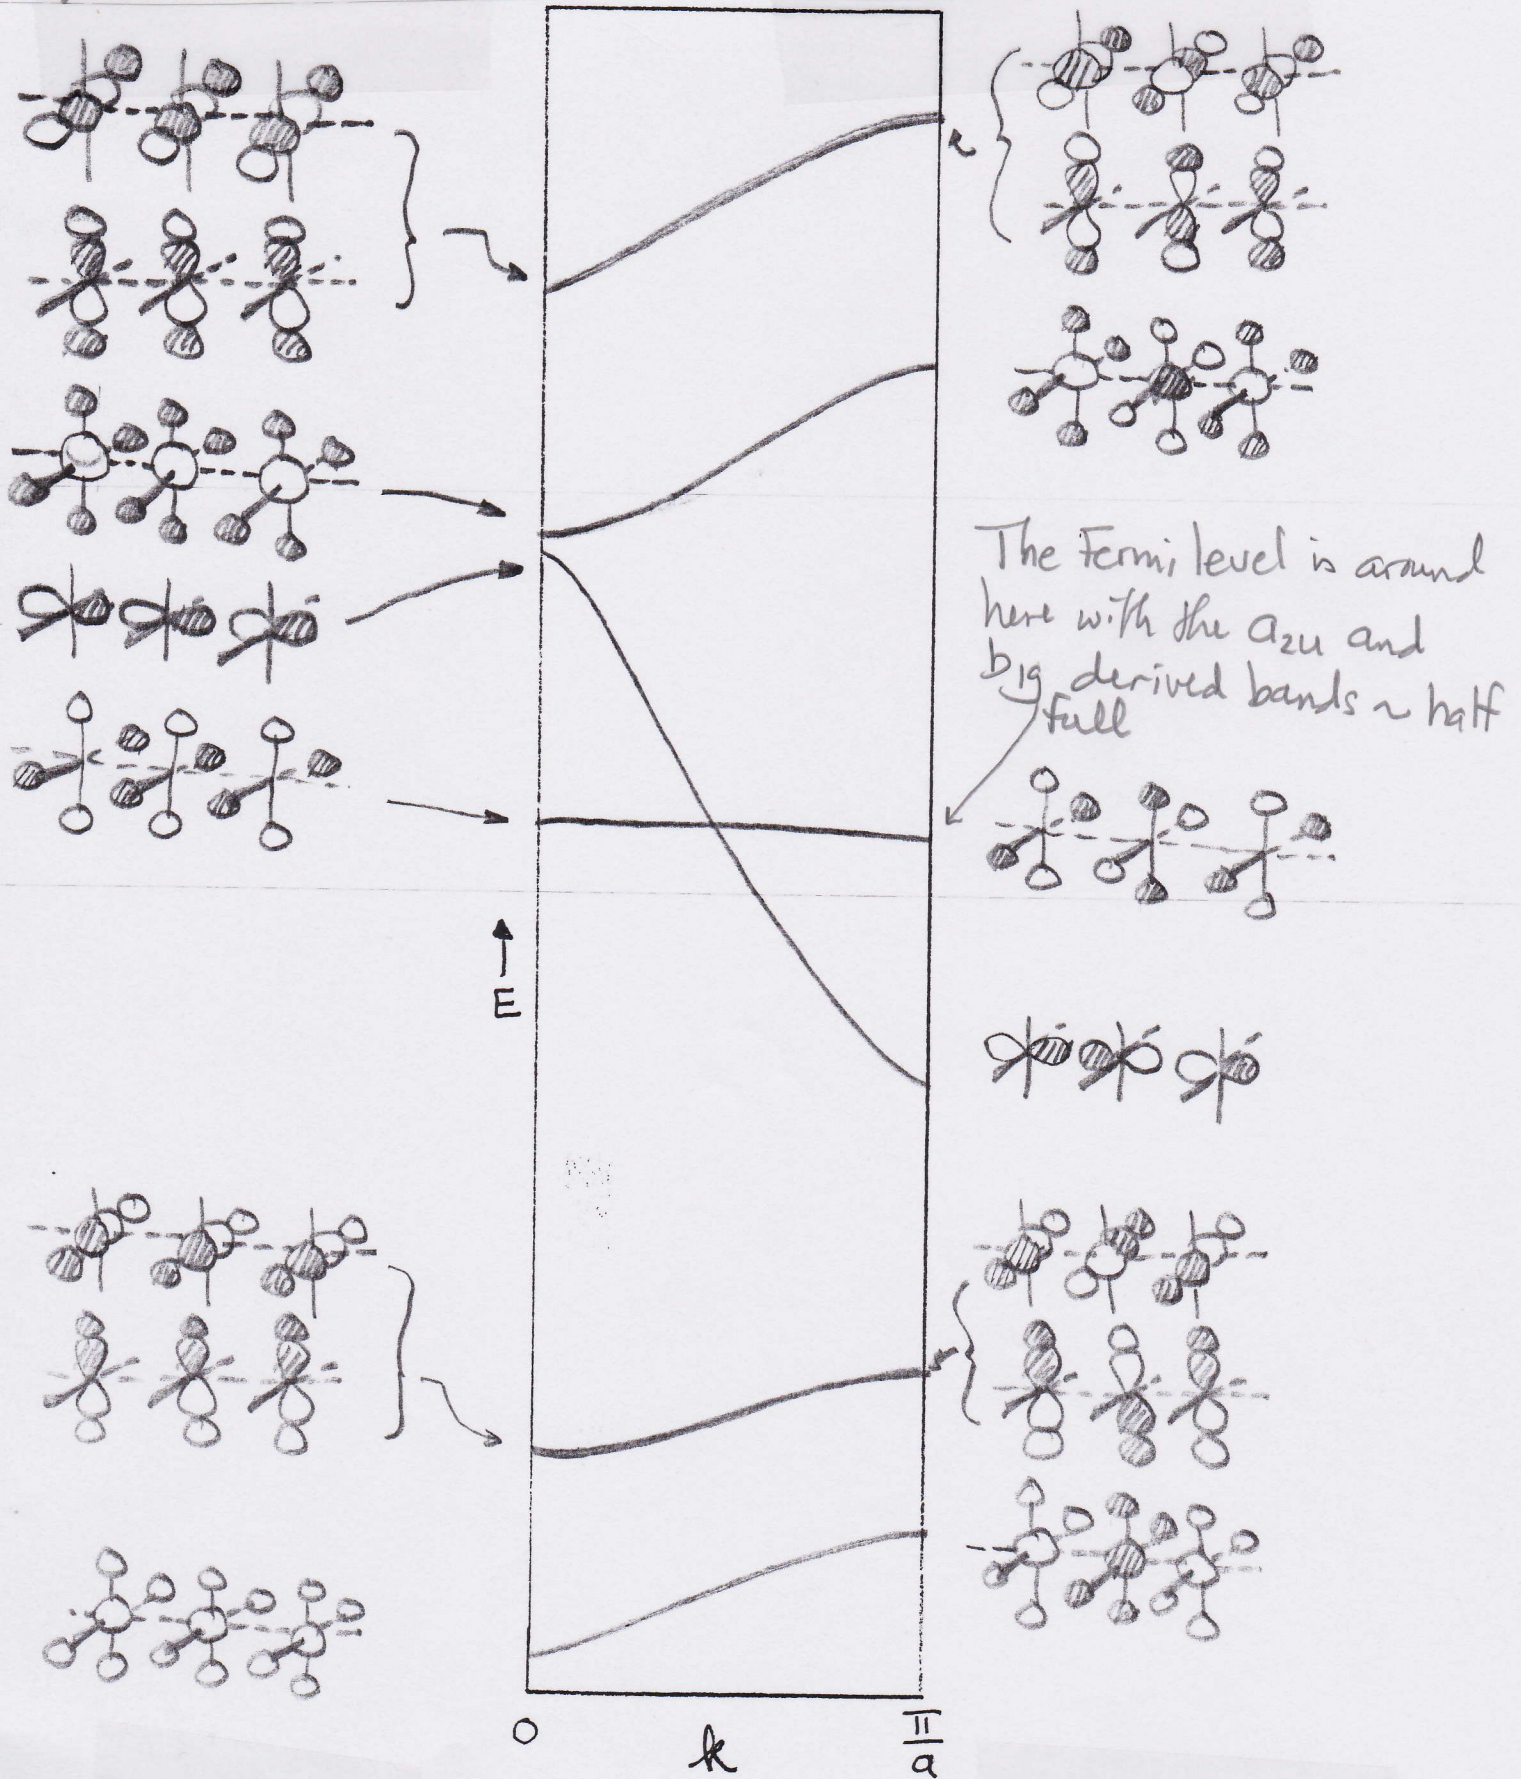 The Fermi level is around
here with the a2u and
b1g derived bands ~ half
full
E
0
k
π
a